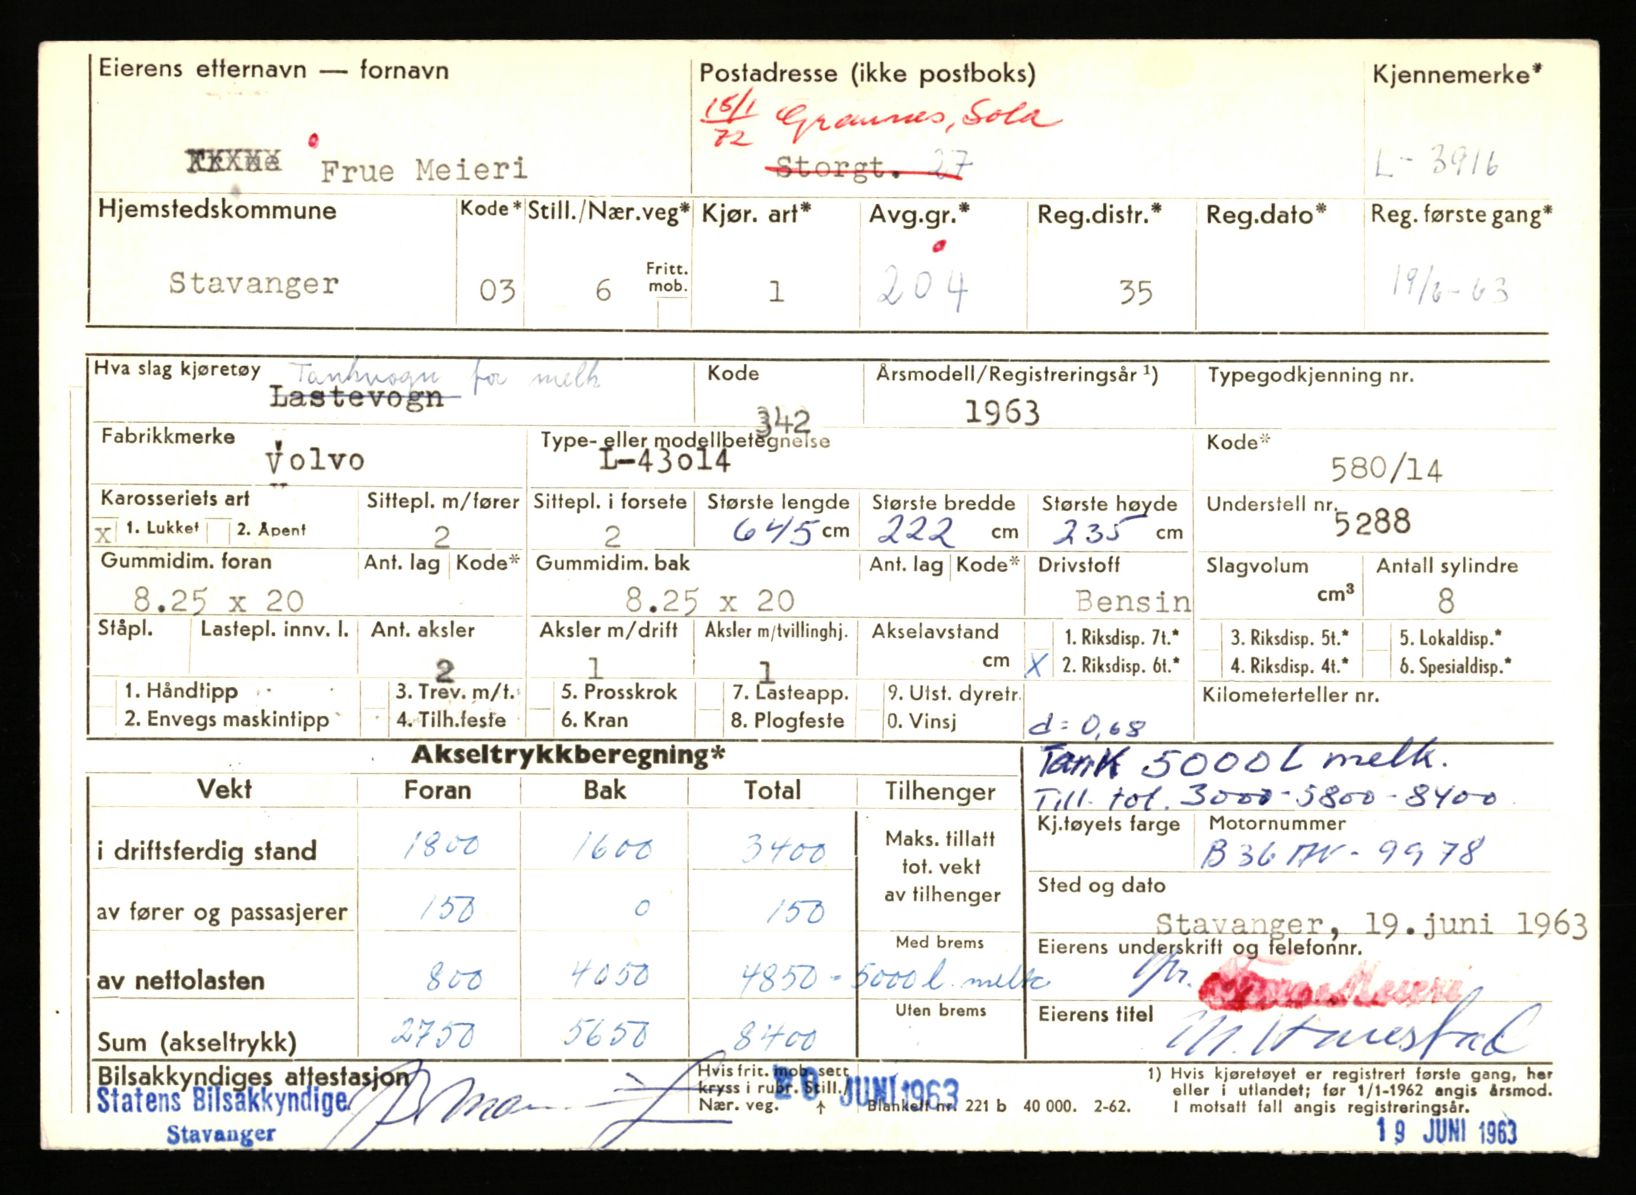 Eierens etternavn — fornavn Postadresse (ikke postboks) Kjennemerke*
15/1 72 Grannes, Sola
Frue Meieri Storgt. 27 L - 3916
Hjemstedskommune Kode* Still./Nær.veg* Kjør. art* Avg.gr.* Reg.distr.* Reg.dato* Reg. første gang*
Stavanger 03 6 Fritt. mob. 1 204 35 19/6-63
Hva slag kjøretøy Tankvogn for melk Kode Årsmodell/Registreringsår ¹) Typegodkjenning nr.
Lastevogn 342 1963
Fabrikkmerke Type- eller modellbetegnelse Kode*
Volvo L-43o14 580/14
Karosseriets art Sittepl. m/fører Sittepl. i forsete Største lengde Største bredde Største høyde Understell nr.
x 1. Lukket 2. Åpent 2 2 645 cm 222 cm 235 cm 5288
Gummidim. foran Ant. lag Kode* Gummidim. bak Ant. lag Kode* Drivstoff Slagvolum Antall sylindre
8.25 x 20 8.25 x 20 Bensin cm³ 8
Ståpl. Lastepl. innv. l. Ant. aksler Aksler m/drift Aksler m/tvillinghj. Akselavstand 1. Riksdisp. 7t.* 3. Riksdisp. 5t.* 5. Lokaldisp.*
2 1 1 cm X 2. Riksdisp. 6t.* 4. Riksdisp. 4t.* 6. Spesialdisp.*
1. Håndtipp 3. Trev. m/t. 5. Prosskrok 7. Lasteapp. 9. Utst. dyretr. Kilometerteller nr.
2. Envegs maskintipp 4. Tilh.feste 6. Kran 8. Plogfeste 0. Vinsj d = 0,68
Akseltrykkberegning* Tank 5000 L melk.
Vekt Foran Bak Total Tilhenger Till. tot. 3000 - 5800 - 8400
Kj.tøyets farge Motornummer
i driftsferdig stand 1800 1600 3400 Maks. tillatt tot. vekt av tilhenger B36AV - 9978
Sted og dato
av fører og passasjerer 150 0 150 Stavanger, 19.juni 1963
Med brems Eierens underskrift og telefonnr.
av nettolasten 800 4050 4850 = 5000 l. melk pr. Frue Meieri
Uten brems Eierens titel
Sum (akseltrykk) 2750 5650 8400
Bilsakkyndiges attestasjon Hvis frit. mob. sett kryss i rubr. Still./ Nær. veg. ↑
Statens Bilsakkyndige 20 JUNI 1963
Stavanger Blankett nr. 221 b 40 000. 2-62.
1) Hvis kjøretøyet er registrert første gang, her
eller i utlandet; før 1/1-1962 angis årsmod.
I motsatt fall angis registreringsår.
19 JUNI 1963